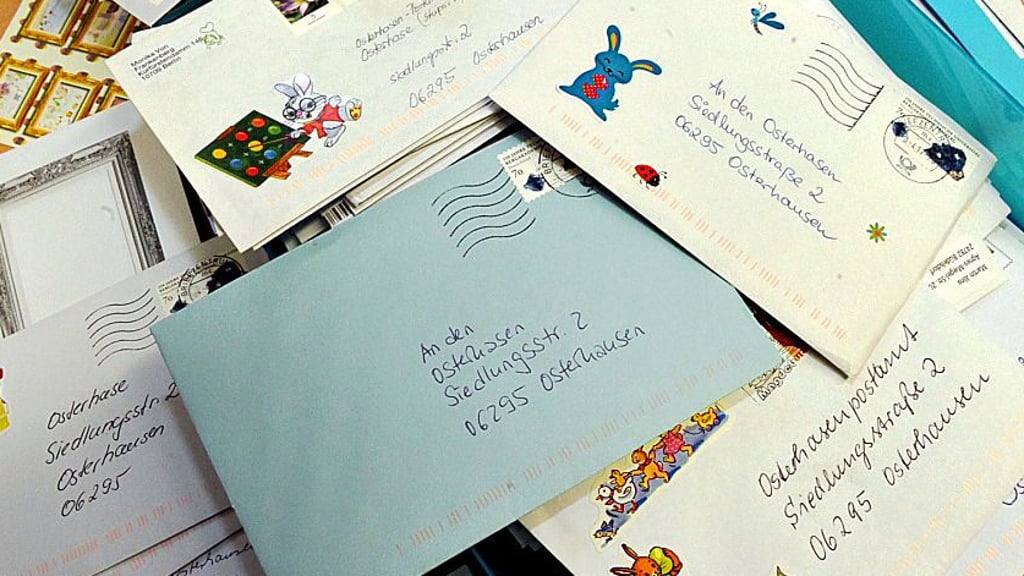 Monika Von
Frankenberg
10709 Berlin
Osterhase
Siedlungsstr. 2
06295 Osterhausen
An den Osterhasen
Siedlungsstraße 2
06295 Osterhausen
70
An den
Osterhasen
Siedlungsstr. 2
06295 Osterhausen
70
Osterhase
Siedlungsstr. 2
Osterhausen
06295
Osterhasenpostamt
Siedlungsstraße 2
06295 Osterhausen
24782 Büdelsdorf